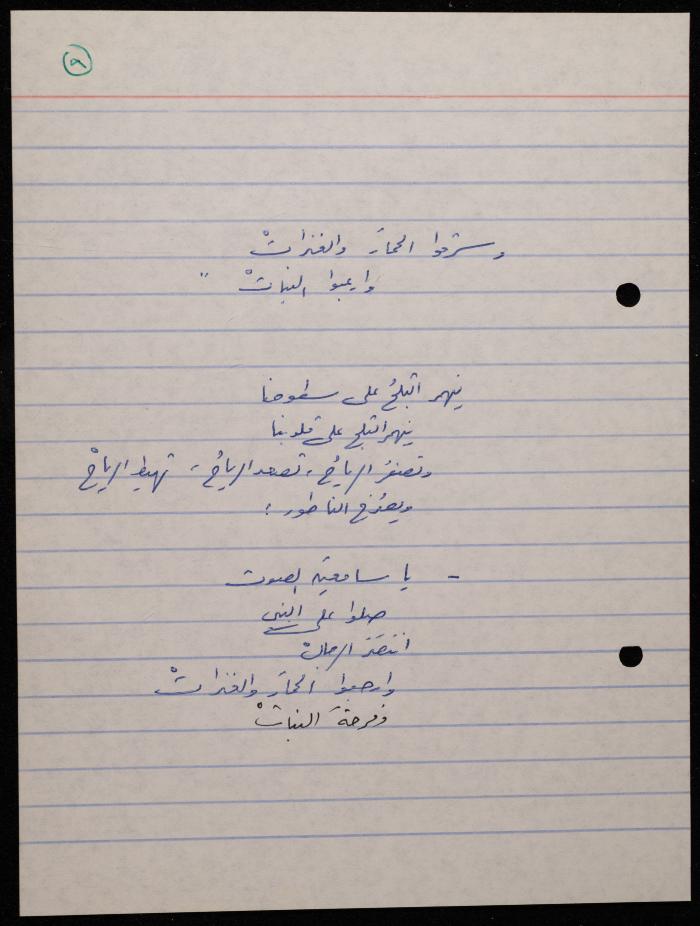 ٩
وسترحوا الحمارَ والعنزاتْ
وارعبوا البناتْ "
ينهمر الثلجُ على سطوحنا
ينهمر الثلج على قلوبنا
وتصفرُ الرياحُ، تصعد الرياحُ، تهبط الرياحْ
ويصرخ الناطور:
- يا سامعين الصوت
صلوا على النبي
انتصرَ الرجالْ
وارجعوا الحمارَ والعنزاتْ
وفرحةَ البناتْ